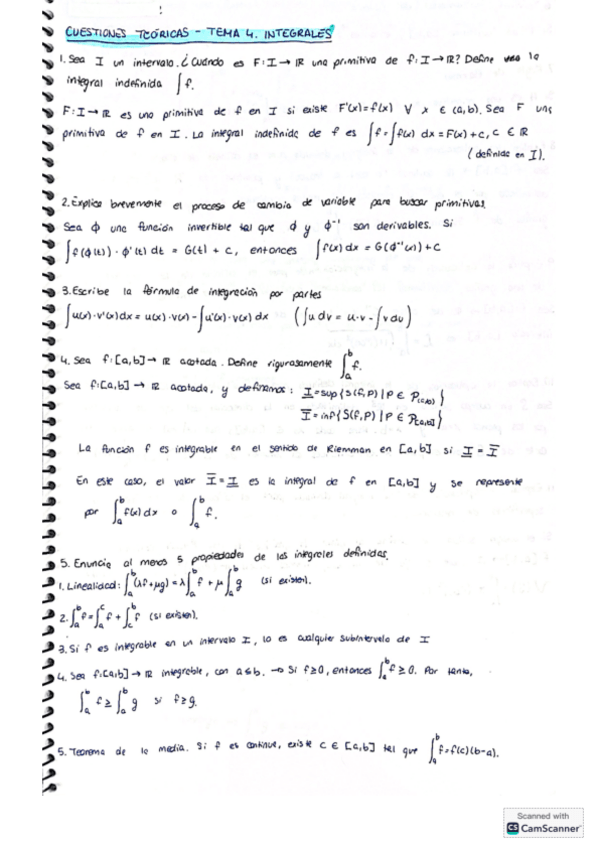 CUESTIONES TEÓRICAS - TEMA 4. INTEGRALES
1. Sea I un intervalo. ¿Cuándo es F: I → ℝ una primitiva de f: I → ℝ? Define la
integral indefinida ∫f.
F: I → ℝ es una primitiva de f en I si existe F'(x) = f(x) ∀ x ∈ (a,b). Sea F una
primitiva de f en I. La integral indefinida de f es ∫f = ∫f(x) dx = F(x) + C, C ∈ ℝ
(definida en I).
2. Explica brevemente el proceso de cambio de variable para buscar primitivas
Sea ϕ una función invertible tal que ϕ y ϕ⁻¹ son derivables. Si
∫f(ϕ(t)) · ϕ'(t) dt = G(t) + C, entonces ∫f(x) dx = G(ϕ⁻¹(x)) + C
3. Escribe la fórmula de integración por partes
∫u(x) · v'(x) dx = u(x) · v(x) - ∫u'(x) · v(x) dx (∫u dv = u · v - ∫v du)
4. Sea f: [a,b] → ℝ acotada. Define rigurosamente ∫ₐᵇ f.
Sea f: [a,b] → ℝ acotada, y definimos: I̲ = sup {S(f,P) | P ∈ P[a,b]}
I̅ = inf {S(f,P) | P ∈ P[a,b]}
La función f es integrable en el sentido de Riemman en [a,b] si I̲ = I̅
En este caso, el valor I̅ = I̲ es la integral de f en [a,b] y se representa
por ∫ₐᵇ f(x) dx o ∫ₐᵇ f.
5. Enuncia al menos 5 propiedades de las integrales definidas.
1. Linealidad: ∫ₐᵇ (λf + μg) = λ∫ₐᵇ f + μ∫ₐᵇ g (si existen).
2. ∫ₐᵇ f = ∫ₐᶜ f + ∫꜀ᵇ f (si existen).
3. Si f es integrable en un intervalo I, lo es cualquier subintervalo de I
4. Sea f: [a,b] → ℝ integrable, con a ≤ b. → Si f ≥ 0, entonces ∫ₐᵇ f ≥ 0. Por tanto,
∫ₐᵇ f ≥ ∫ₐᵇ g si f ≥ g.
5. Teorema de la media. Si f es continua, existe c ∈ [a,b] tal que ∫ₐᵇ f = f(c)(b-a).
Scanned with
CS CamScanner